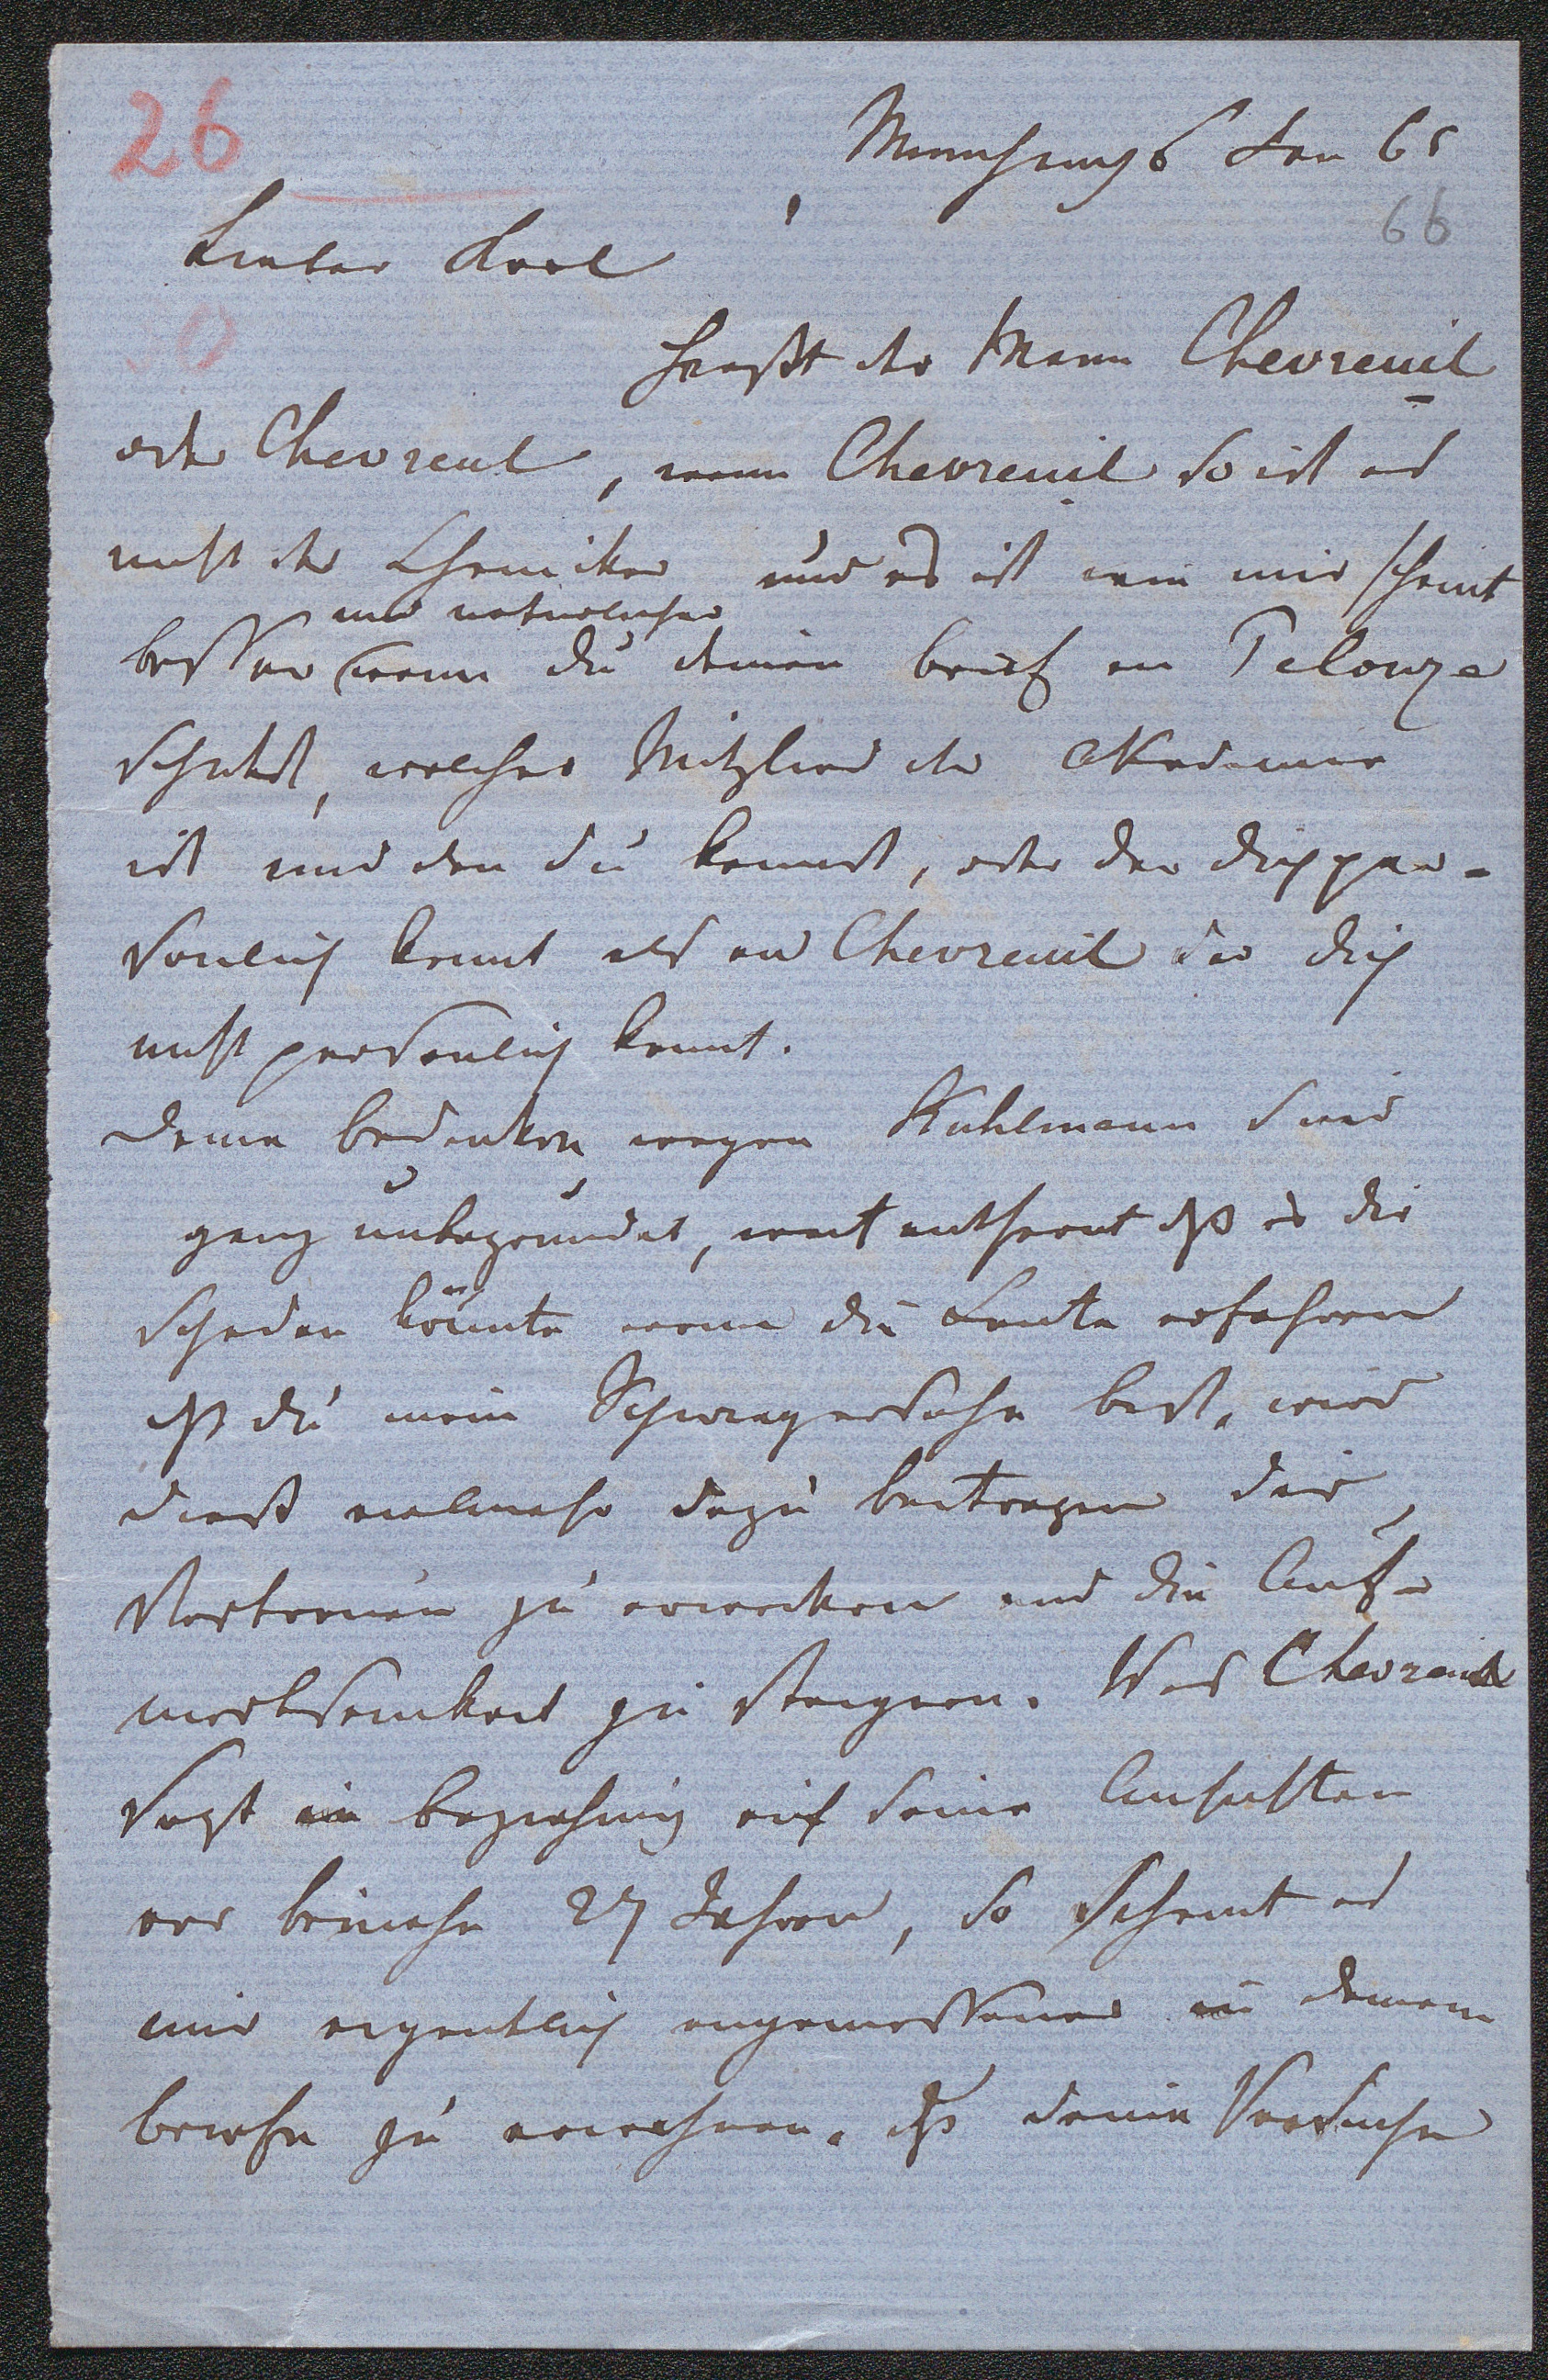 26
München 6 Jan 65
66
Lieber Karl
heißt der Mann Chevreuil
oder Chevreul, wenn Chevreuil so ist es
nicht der Chemiker und es ist wie mir scheint
und natürlicher
besser wenn du deinen brief an Pelouze
schickst, welcher Mitglied der Akademie
ist und den du kennst, oder der dich per-
sönlich kennt als an Chevreuil der dich
nicht persönlich kennt.
Deine bedenken wegen Kuhlmann sind
ganz unbegründet, weit entfernt dß es dir
schaden könnte wenn die Leute erfahren
dß du mein Schwiegersohn bist, wird
dieß vielmehr dazu beitragen dir
Vertrauen zu erwecken und die Auf-
merksamkeit zu steigern. Was Chevreul
sagt in beziehung auf seine Ansichten
vor beinahe 27 Jahren, so scheint es
mir eigentlich angemessener in deinem
briefe zu erwähnen, dß deine Versuche